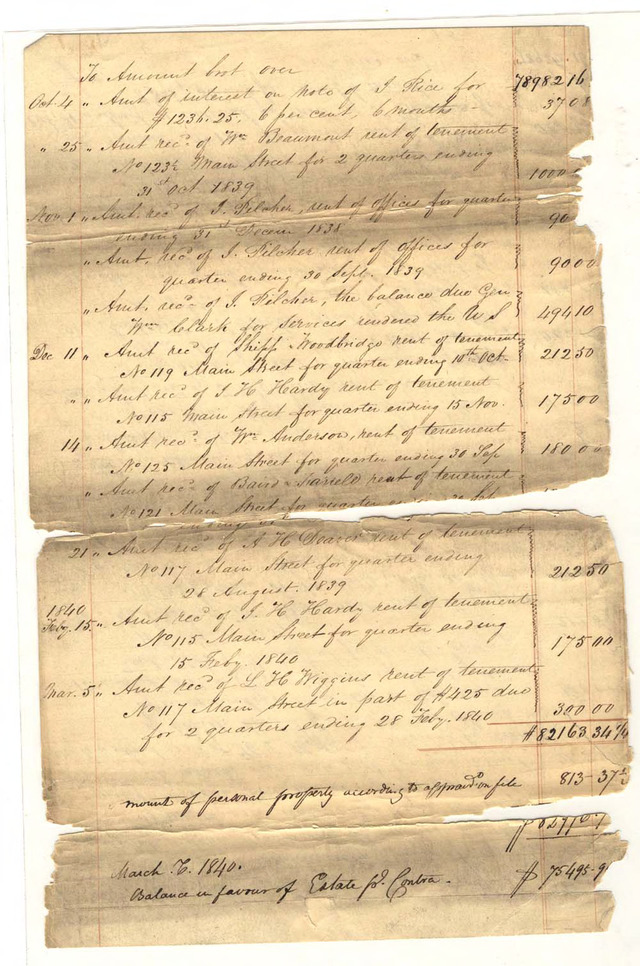 To Amount bro't over 78982 16
Oct. 4 " Amt of interest on note of J Rice for
$1236.25. 6 per cent, 6 months 37 08
" 25 " Amt rec.d of Wm Beaumont rent of tenement
No 123½ Main Street for 2 quarters ending
31st Oct 1839 1000
Nov. 1 " Amt. rec.d of J. Pilcher, rent of offices for quarter
ending 31st Decem 1838 90
" Amt. rec.d of J. Pilcher rent of offices for
quarter ending 30 Sept. 1839 90 00
" Amt. rec.d of J. Pilcher, the balance due Gen
Wm Clark for services rendered the U S 494 10
Dec 11 " Amt rec.d of Shipp Woodbridge rent of tenement
No 119 Main Street for quarter ending 10th Oct. 212 50
" " Amt rec.d of J H Hardy rent of tenement
No 115 Main Street for quarter ending 15 Nov. 175 00
14 " Amt rec.d of Wm Anderson, rent of tenement
No 125 Main Street for quarter ending 30 Sep 180 00
" Amt rec.d of Baird rent of tenement
No 121 Main Street for quarter
21 " Amt rec.d of H rent of tenement
No 117 Main Street for quarter ending
28 August. 1839 212 50
1840
Feby. 15 " Amt rec.d of J. H. Hardy rent of tenement
No 115 Main Street for quarter ending
15 Feby. 1840 175 00
Mar. 5 " Amt rec.d of L H Wiggins rent of tenement
No 117 Main Street in part of $425 due
for 2 quarters ending 28 Feby. 1840 300 00
$82163 34
mount of personal property according to appraisd on file 813 37½
March 6. 1840.
Balance in favour of Estate pr. Contra. $ 75495 9